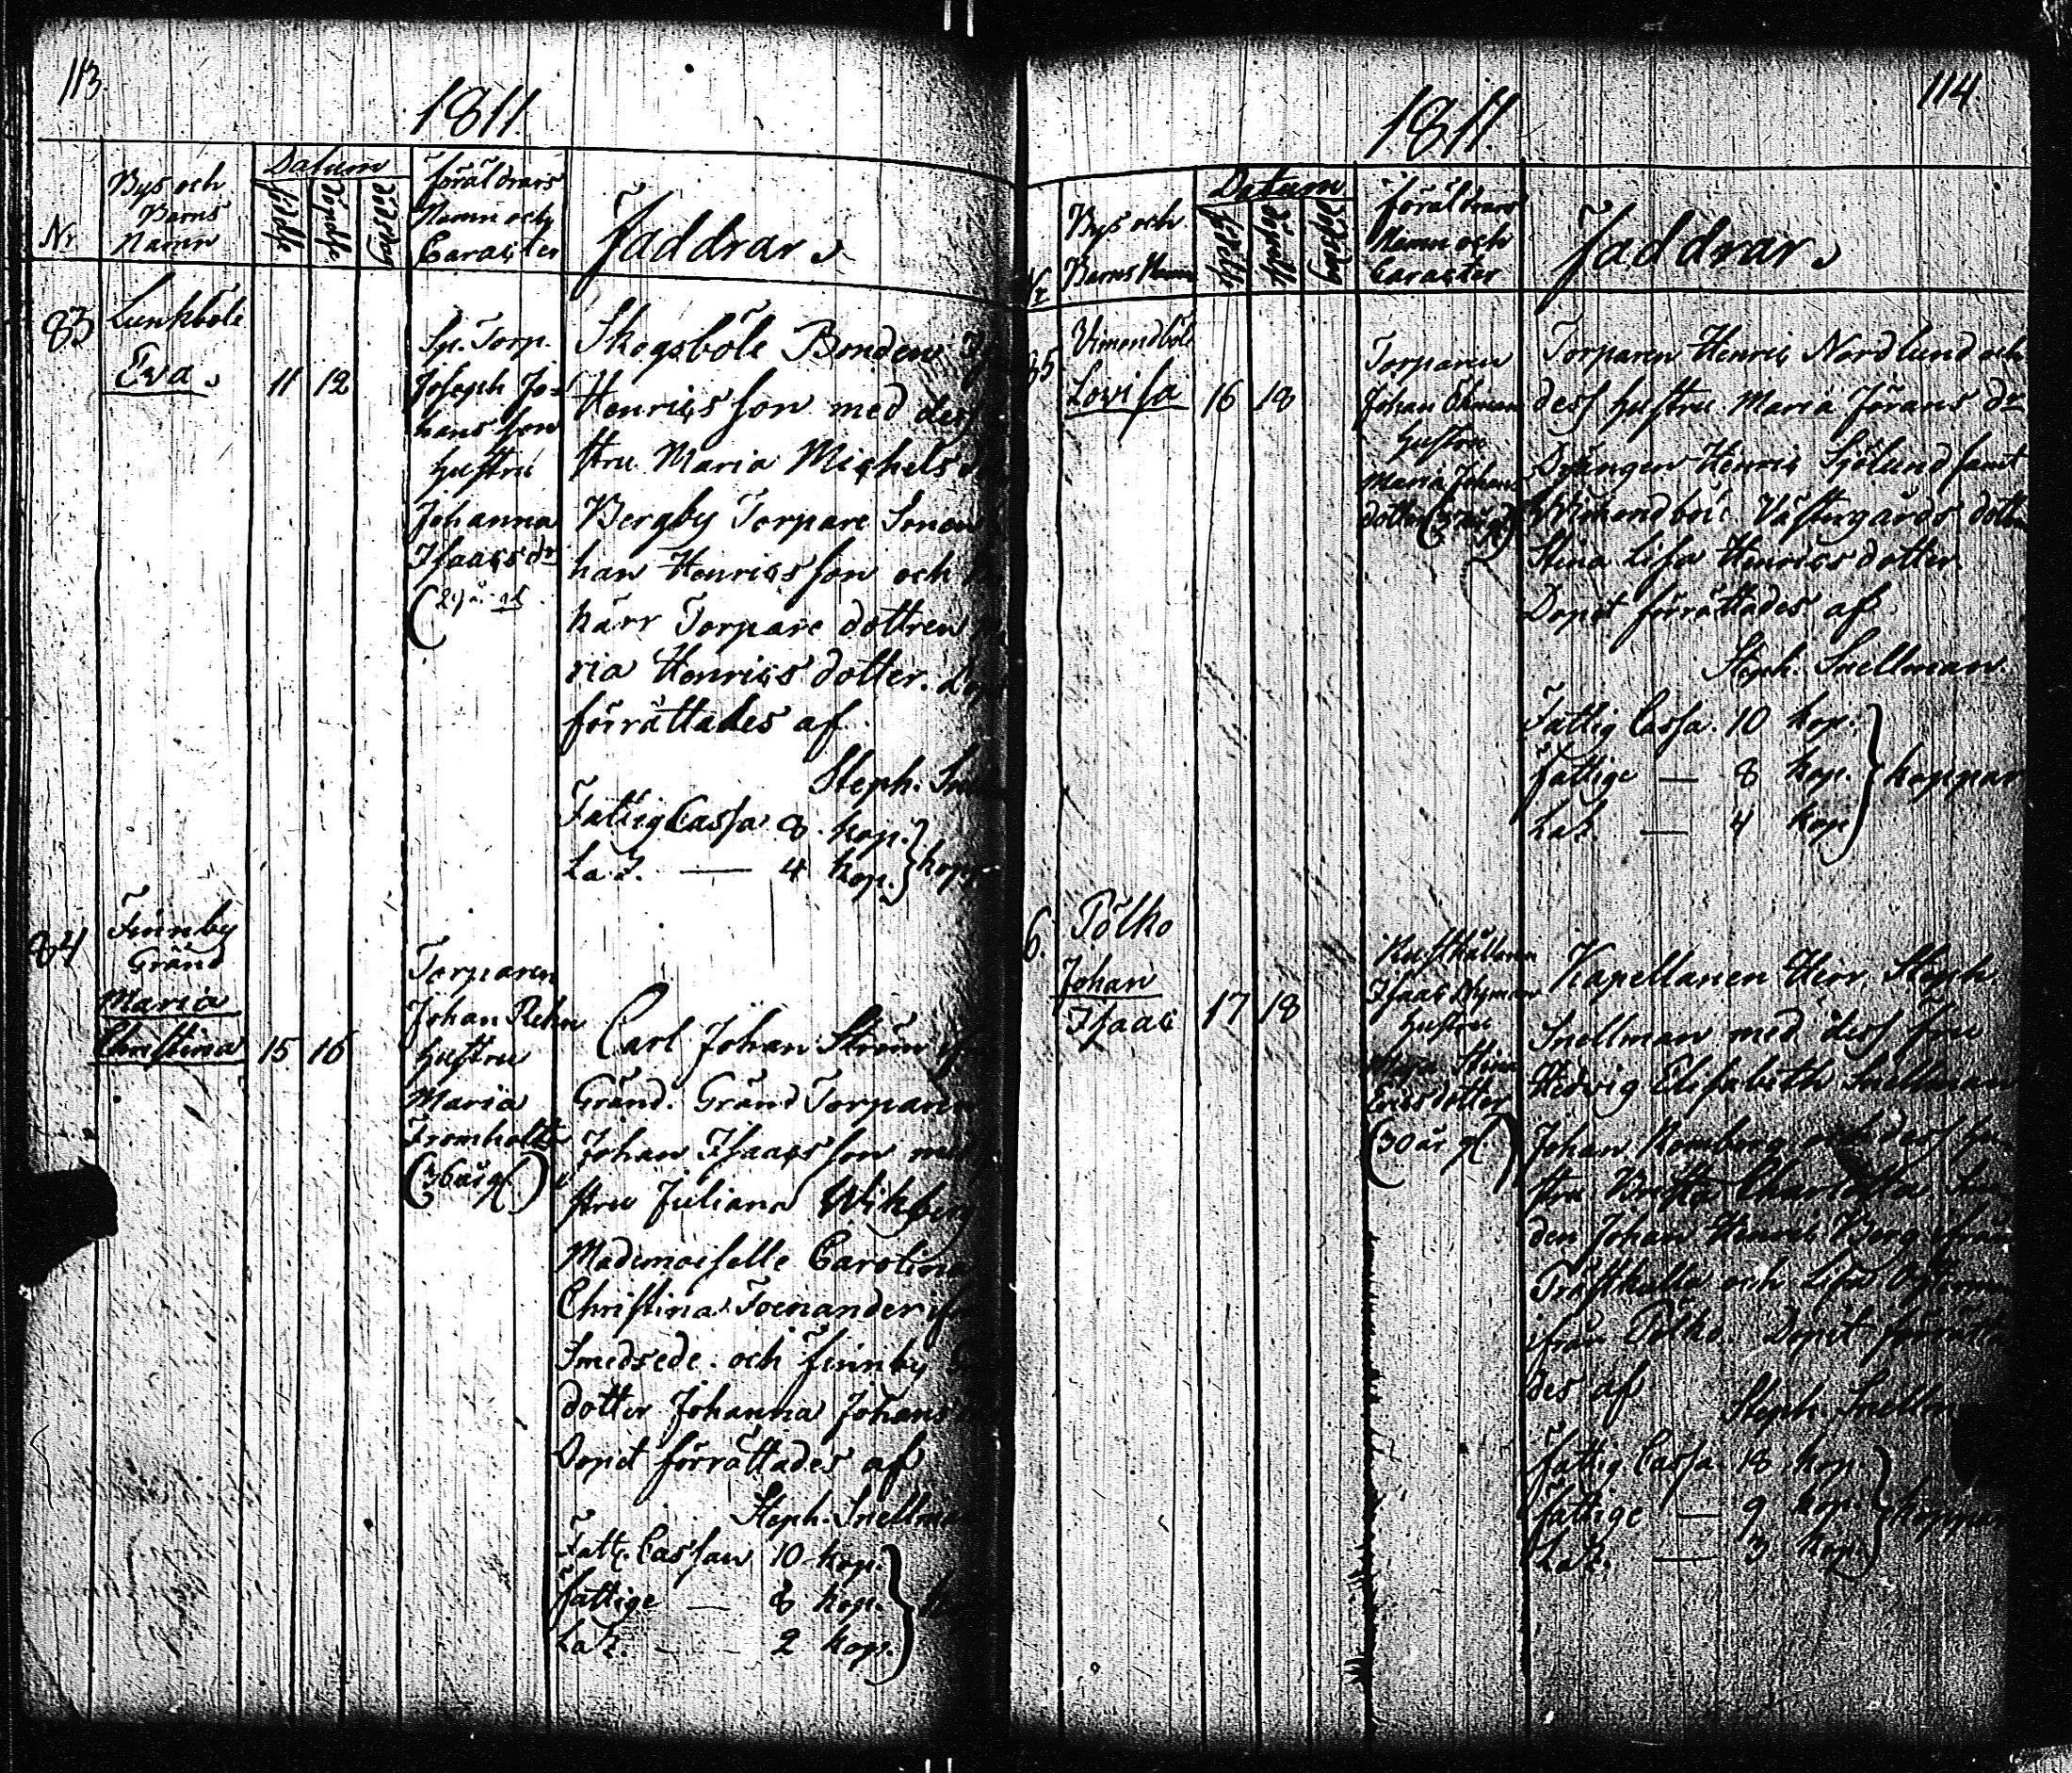 113
1811.
Nr
Bys och
Barns
Namn
Datum
födelse
döpelse
dödsdag
föräldrars
Namn och
Caracter
Faddrar.
83
Lunkböle
Eva.
11 12
Sp. Torp.
Joseph Jo-
hansson
hustru
Johanna
Isaacs dr
Skogsböle Bonden
Henricsson med dess
stru Maria Michels
Bergby Torpare Sonen
han Henricsson och
kärr Torpare dottren
ria Henricsdotter.
förrättades af
Steph.
Fattig Cassa 8 kop.
Laz. — 4 kop.
84
Finnby
Gränd
Maria
Christina
15 16
Torparen
Johan Rehn
hustru
Maria
Fromholtz
(36 år gl.)
Carl Johan Ström
Gränd. Gränd Torparen
Johan Isaacsson med
stru Juliana Wikberg
Mademoiselle Carolina
Christina Foenander
Smedsede och finnby
dotter Johanna Johans
Dopet förrättades af
Steph. Snellman
Fatt. Cassan 10 kop.
fattige — 8 kop.
Laz. — 2 kop.
114
1811.
Nr
Bys och
Barns Namn
Datum
födelse
döpelse
dödsdag
föräldrars
Namn och
Caracter
Faddrar.
85
Vimondböle
Lovisa
16 18
Torparen
Johan Öhman
hustru
Maria Johans
dotter
Torparen Henric Nordlund och
dess hustru Maria Jörans dr
Drängen Henric Sjölund samt
Vimondböle Västergårds dotter
Stina Lisa Henricsdotter
Dopet förrättades af
Steph. Snellman.
Fattig Cassa. 10 kop.
fattige — 8 kop. koppar
Laz. — 4 kop
6.
Pölko
Johan
Isaac
17 18
Rusthållaren
Isaac Nyman
hustru
Stina
Ericsdotter
(30 år gl.)
Kapellanen Herr Steph.
Snellman med dess fru
Hedvig Elisabeth Snellman
Johan Romberg och dess hu-
stru Britta Charlotta
den Johan Henric Berg ifrån
Träskkulla och Lisa Österman
ifrån Pölko. Dopet förrätta
des af
Steph. Snellm
fattig Cassa 18 kop.
fattige — 9 kop. koppar
Laz. — 3 kop.